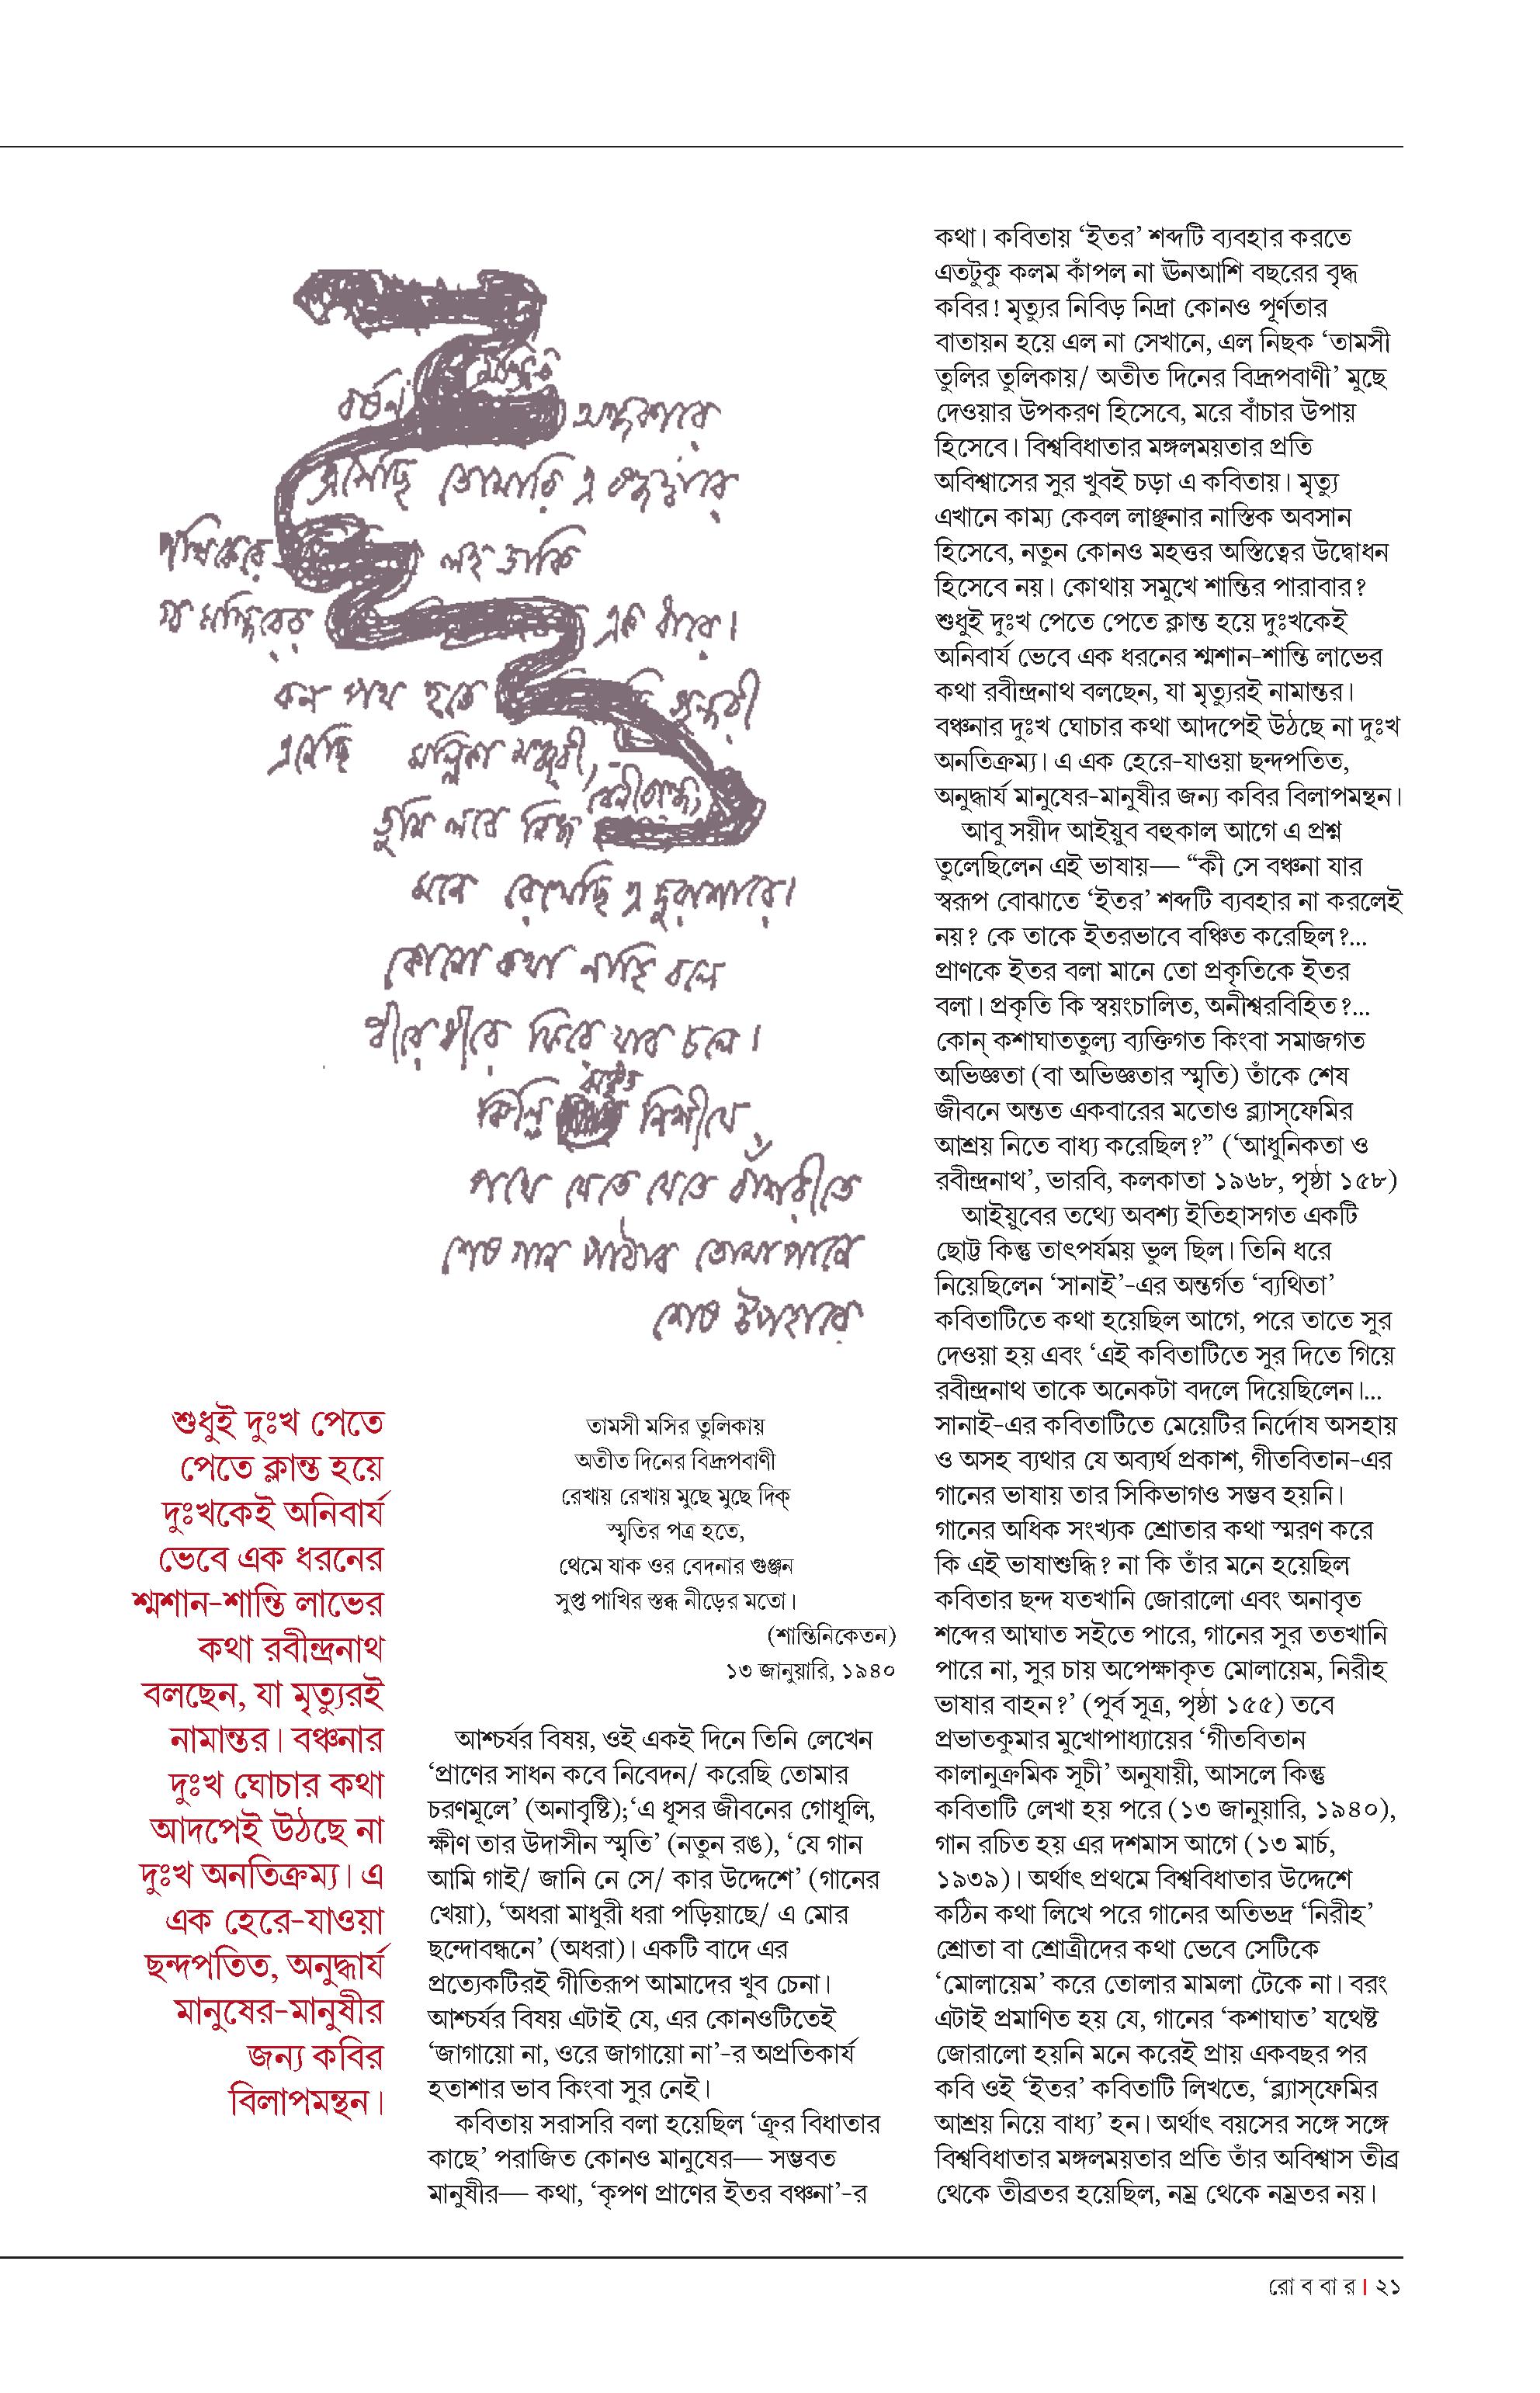 বর্ষণ অন্ধকারে
এসেছি তোমারি এ বদ্ধদ্বারে
পথিকেরে লহ ডাকি
মন্দিরের এক ধারে।
বন পথ হতে সুন্দরী
এনেছি মল্লিকা মঞ্জরী,
তুমি লবে নিজ বেণীবন্ধে,
মনে রেখেছি এ দুরাশারে।
কোনো কথা নাহি বলে
ধীরে ধীরে ফিরে যাব চলে।
ঝিল্লি ঝঙ্কৃত নিশীথে
পথে যেতে যেতে বাঁশরীতে
শেষ গান পাঠাব তোমা পানে
শেষ উপহারে
শুধুই দুঃখ পেতে
পেতে ক্লান্ত হয়ে
দুঃখকেই অনিবার্য
ভেবে এক ধরনের
শ্মশান-শান্তি লাভের
কথা রবীন্দ্রনাথ
বলছেন, যা মৃত্যুরই
নামান্তর। বঞ্চনার
দুঃখ ঘোচার কথা
আদপেই উঠছে না
দুঃখ অনতিক্রম্য। এ
এক হেরে-যাওয়া
ছন্দপতিত, অনুদ্ধার্য
মানুষের-মানুষীর
জন্য কবির
বিলাপমন্থন।
তামসী মসির তুলিকায়
অতীত দিনের বিদ্রূপবাণী
রেখায় রেখায় মুছে মুছে দিক্
স্মৃতির পত্র হতে,
থেমে যাক ওর বেদনার গুঞ্জন
সুপ্ত পাখির স্তব্ধ নীড়ের মতো।
(শান্তিনিকেতন)
১৩ জানুয়ারি, ১৯৪০
আশ্চর্যর বিষয়, ওই একই দিনে তিনি লেখেন
‘প্রাণের সাধন কবে নিবেদন/ করেছি তোমার
চরণমূলে’ (অনাবৃষ্টি);‘এ ধূসর জীবনের গোধূলি,
ক্ষীণ তার উদাসীন স্মৃতি’ (নতুন রঙ), ‘যে গান
আমি গাই/ জানি নে সে/ কার উদ্দেশে’ (গানের
খেয়া), ‘অধরা মাধুরী ধরা পড়িয়াছে/ এ মোর
ছন্দোবন্ধনে’ (অধরা)। একটি বাদে এর
প্রত্যেকটিরই গীতিরূপ আমাদের খুব চেনা।
আশ্চর্যর বিষয় এটাই যে, এর কোনওটিতেই
‘জাগায়ো না, ওরে জাগায়ো না’-র অপ্রতিকার্য
হতাশার ভাব কিংবা সুর নেই।
কবিতায় সরাসরি বলা হয়েছিল ‘ক্রূর বিধাতার
কাছে’ পরাজিত কোনও মানুষের— সম্ভবত
মানুষীর— কথা, ‘কৃপণ প্রাণের ইতর বঞ্চনা’-র
কথা। কবিতায় ‘ইতর’ শব্দটি ব্যবহার করতে
এতটুকু কলম কাঁপল না ঊনআশি বছরের বৃদ্ধ
কবির! মৃত্যুর নিবিড় নিদ্রা কোনও পূর্ণতার
বাতায়ন হয়ে এল না সেখানে, এল নিছক ‘তামসী
তুলির তুলিকায়/ অতীত দিনের বিদ্রূপবাণী’ মুছে
দেওয়ার উপকরণ হিসেবে, মরে বাঁচার উপায়
হিসেবে। বিশ্ববিধাতার মঙ্গলময়তার প্রতি
অবিশ্বাসের সুর খুবই চড়া এ কবিতায়। মৃত্যু
এখানে কাম্য কেবল লাঞ্ছনার নাস্তিক অবসান
হিসেবে, নতুন কোনও মহত্তর অস্তিত্বের উদ্বোধন
হিসেবে নয়। কোথায় সমুখে শান্তির পারাবার?
শুধুই দুঃখ পেতে পেতে ক্লান্ত হয়ে দুঃখকেই
অনিবার্য ভেবে এক ধরনের শ্মশান-শান্তি লাভের
কথা রবীন্দ্রনাথ বলছেন, যা মৃত্যুরই নামান্তর।
বঞ্চনার দুঃখ ঘোচার কথা আদপেই উঠছে না দুঃখ
অনতিক্রম্য। এ এক হেরে-যাওয়া ছন্দপতিত,
অনুদ্ধার্য মানুষের-মানুষীর জন্য কবির বিলাপমন্থন।
আবু সয়ীদ আইয়ুব বহুকাল আগে এ প্রশ্ন
তুলেছিলেন এই ভাষায়— “কী সে বঞ্চনা যার
স্বরূপ বোঝাতে ‘ইতর’ শব্দটি ব্যবহার না করলেই
নয়? কে তাকে ইতরভাবে বঞ্চিত করেছিল?...
প্রাণকে ইতর বলা মানে তো প্রকৃতিকে ইতর
বলা। প্রকৃতি কি স্বয়ংচালিত, অনীশ্বরবিহিত?...
কোন্ কশাঘাততুল্য ব্যক্তিগত কিংবা সমাজগত
অভিজ্ঞতা (বা অভিজ্ঞতার স্মৃতি) তাঁকে শেষ
জীবনে অন্তত একবারের মতোও ব্ল্যাস্‌ফেমির
আশ্রয় নিতে বাধ্য করেছিল?” (‘আধুনিকতা ও
রবীন্দ্রনাথ’, ভারবি, কলকাতা ১৯৬৮, পৃষ্ঠা ১৫৮)
আইয়ুবের তথ্যে অবশ্য ইতিহাসগত একটি
ছোট্ট কিন্তু তাৎপর্যময় ভুল ছিল। তিনি ধরে
নিয়েছিলেন ‘সানাই’-এর অন্তর্গত ‘ব্যথিতা’
কবিতাটিতে কথা হয়েছিল আগে, পরে তাতে সুর
দেওয়া হয় এবং ‘এই কবিতাটিতে সুর দিতে গিয়ে
রবীন্দ্রনাথ তাকে অনেকটা বদলে দিয়েছিলেন।...
সানাই-এর কবিতাটিতে মেয়েটির নির্দোষ অসহায়
ও অসহ ব্যথার যে অব্যর্থ প্রকাশ, গীতবিতান-এর
গানের ভাষায় তার সিকিভাগও সম্ভব হয়নি।
গানের অধিক সংখ্যক শ্রোতার কথা স্মরণ করে
কি এই ভাষাশুদ্ধি? না কি তাঁর মনে হয়েছিল
কবিতার ছন্দ যতখানি জোরালো এবং অনাবৃত
শব্দের আঘাত সইতে পারে, গানের সুর ততখানি
পারে না, সুর চায় অপেক্ষাকৃত মোলায়েম, নিরীহ
ভাষার বাহন?’ (পূর্ব সূত্র, পৃষ্ঠা ১৫৫) তবে
প্রভাতকুমার মুখোপাধ্যায়ের ‘গীতবিতান
কালানুক্রমিক সূচী’ অনুযায়ী, আসলে কিন্তু
কবিতাটি লেখা হয় পরে (১৩ জানুয়ারি, ১৯৪০),
গান রচিত হয় এর দশমাস আগে (১৩ মার্চ,
১৯৩৯)। অর্থাৎ প্রথমে বিশ্ববিধাতার উদ্দেশে
কঠিন কথা লিখে পরে গানের অতিভদ্র ‘নিরীহ’
শ্রোতা বা শ্রোত্রীদের কথা ভেবে সেটিকে
‘মোলায়েম’ করে তোলার মামলা টেকে না। বরং
এটাই প্রমাণিত হয় যে, গানের ‘কশাঘাত’ যথেষ্ট
জোরালো হয়নি মনে করেই প্রায় একবছর পর
কবি ওই ‘ইতর’ কবিতাটি লিখতে, ‘ব্ল্যাস্‌ফেমির
আশ্রয় নিয়ে বাধ্য’ হন। অর্থাৎ বয়সের সঙ্গে সঙ্গে
বিশ্ববিধাতার মঙ্গলময়তার প্রতি তাঁর অবিশ্বাস তীব্র
থেকে তীব্রতর হয়েছিল, নম্র থেকে নম্রতর নয়।
রো ব বা র । ২১